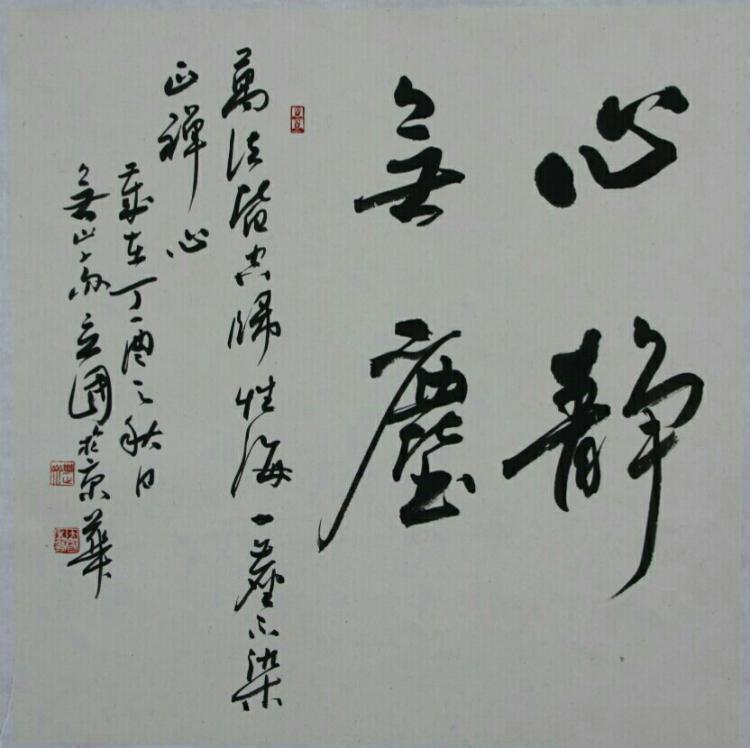 心静
無塵
萬法皆空歸性海一塵不染
正禪心
歲在丁酉之秋日
無山立國於京華